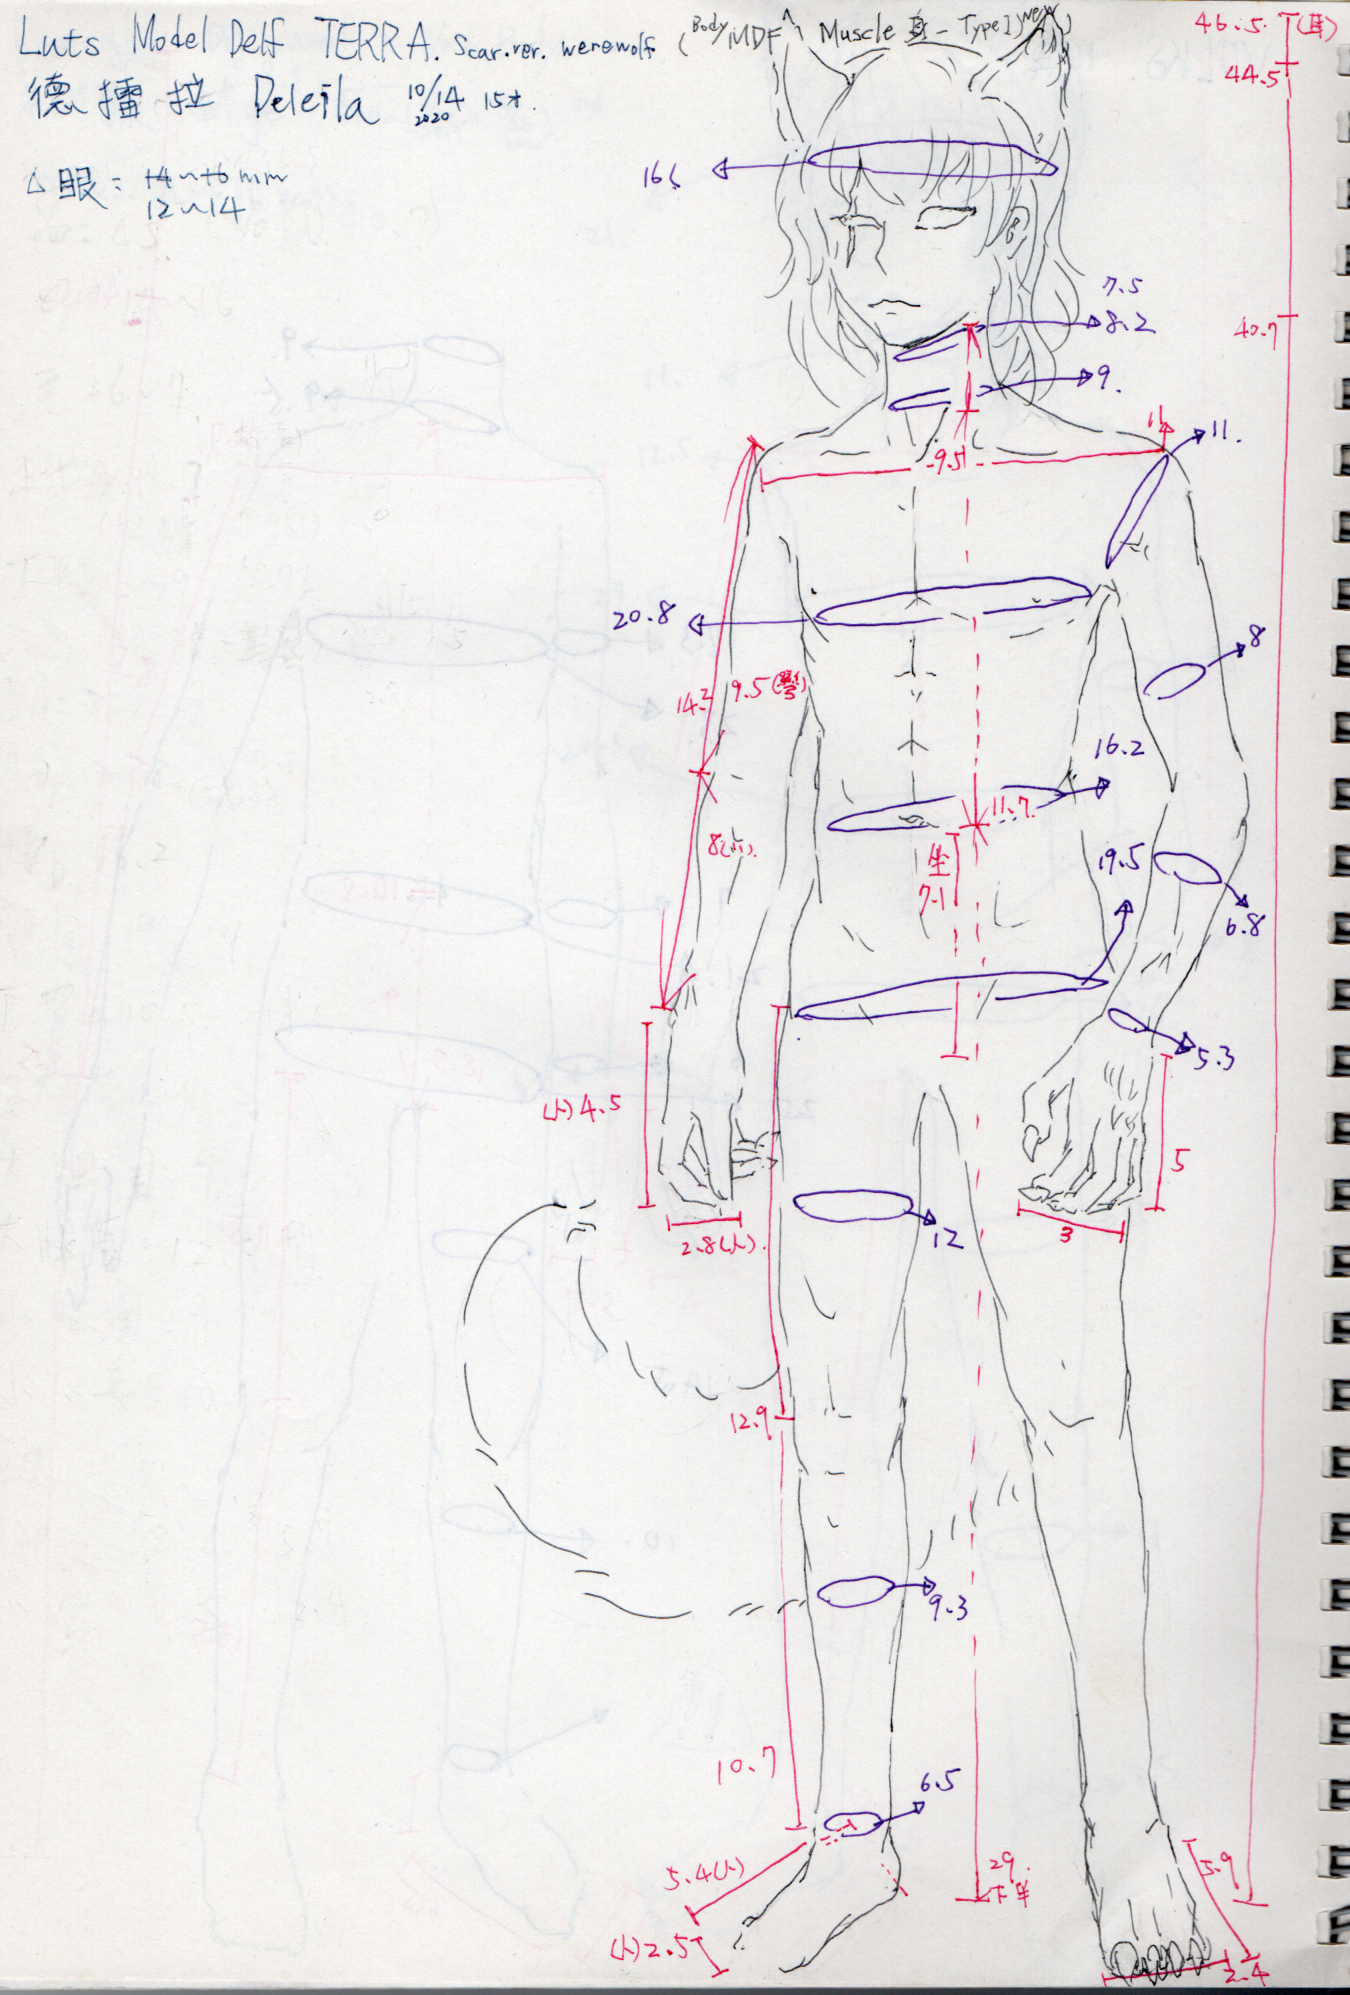 Luts Model Delf TERRA. Scar.ver. werewolf (Body MDF ^ Muscle 身 - Type1) new)
德擂拉 Deleila 10/14 2020 15才.
△ 眼: 14~16 mm
12~14
46.5 (耳)
44.5
40.7
16
7.5
8.2
9.
11
11.
9.5
20.8
8
14.2
9.5
16.2
11.7.
8
坐
7.1
19.5
6.8
5.3
(人) 4.5
5
2.8(人).
3
12
12.9
9.3
10.7
6.5
5.4(人)
29.
下半
5.9
(人) 2.5
2.4